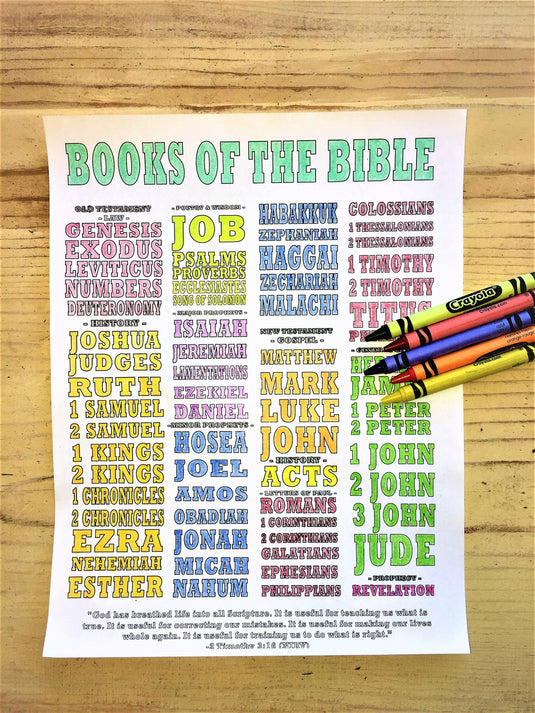 BOOKS OF THE BIBLE
OLD TESTAMENT
- LAW -
GENESIS
EXODUS
LEVITICUS
NUMBERS
DEUTERONOMY
- HISTORY -
JOSHUA
JUDGES
RUTH
1 SAMUEL
2 SAMUEL
1 KINGS
2 KINGS
1 CHRONICLES
2 CHRONICLES
EZRA
NEHEMIAH
ESTHER
- POETRY & WISDOM -
JOB
PSALMS
PROVERBS
ECCLESIASTES
SONG OF SOLOMON
- MAJOR PROPHETS -
ISAIAH
JEREMIAH
LAMENTATIONS
EZEKIEL
DANIEL
- MINOR PROPHETS -
HOSEA
JOEL
AMOS
OBADIAH
JONAH
MICAH
NAHUM
HABAKKUK
ZEPHANIAH
HAGGAI
ZECHARIAH
MALACHI
NEW TESTAMENT
- GOSPEL -
MATTHEW
MARK
LUKE
JOHN
- HISTORY -
ACTS
- LETTERS OF PAUL -
ROMANS
1 CORINTHIANS
2 CORINTHIANS
GALATIANS
EPHESIANS
PHILIPPIANS
COLOSSIANS
1 THESSALONIANS
2 THESSALONIANS
1 TIMOTHY
2 TIMOTHY
TITUS
1 PETER
2 PETER
1 JOHN
2 JOHN
3 JOHN
JUDE
- PROPHECY -
REVELATION
"God has breathed life into all Scripture. It is useful for teaching us what is
true. It is useful for correcting our mistakes. It is useful for making our lives
whole again. It is useful for training us to do what is right."
-2 Timothy 3:16 (NIRV)
Crayola